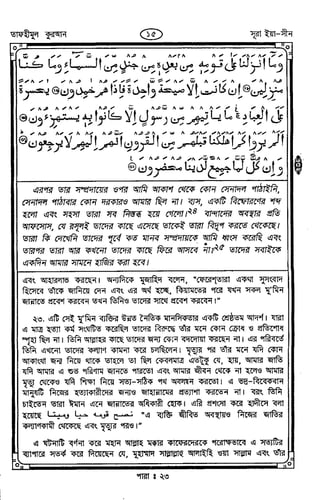 তাফহীমুল কুরআন
১৫
সূরা ইয়া-সীন
وَمَآ اَنْزَلْنَا عَلٰى قَوْمِهٖ مِنْۢ بَعْدِهٖ مِنْ جُنْدٍ مِّنَ السَّمَآءِ وَمَا كُنَّا
مُنْزِلِيْنَ اِنْ كَانَتْ اِلَّا صَيْحَةً وَّاحِدَةً فَاِذَا هُمْ خٰمِدُوْنَ يٰحَسْرَةً
عَلَى الْعِبَادِ مَا يَاْتِيْهِمْ مِّنْ رَّسُوْلٍ اِلَّا كَانُوْا بِهٖ يَسْتَهْزِءُوْنَ
اَلَمْ يَرَوْا كَمْ اَهْلَكْنَا قَبْلَهُمْ مِّنَ الْقُرُوْنِ اَنَّهُمْ اِلَيْهِمْ لَا يَرْجِعُوْنَ
وَاِنْ كُلٌّ لَّمَّا جَمِيْعٌ لَّدَيْنَا مُحْضَرُوْنَ
এরপর তার সম্প্রদায়ের ওপর আমি আকাশ থেকে কোন সেনাদল পাঠাইনি,
সেনাদল পাঠাবার কোন দরকারও আমার ছিল না। ব্যস, একটি বিস্ফোরণের শব্দ
হলো এবং সহসা তারা সব নিস্তব্ধ হয়ে গেলো।২৪ বান্দাদের অবস্থার প্রতি
আফসোস, যে রসূলই তাদের কাছে এসেছে তাকেই তারা বিদ্রূপ করতে থেকেছে।
তারা কি দেখেনি তাদের পূর্বে কত মানব সম্প্রদায়কে আমি ধ্বংস করেছি এবং
তারপর তারা আর কখনো তাদের কাছে ফিরে আসবে না?২৫ তাদের সবাইকে
একদিন আমার সামনে হাজির করা হবে।
এবং আহারলাভ করছেন। অন্যদিকে মুজাহিদ বলেন, "ফেরেশতারা একথা সুসংবাদ
হিসেবে তাঁকে জানিয়ে দেন এবং এর অর্থ হচ্ছে, কিয়ামতের পরে যখন সকল মু'মিন
জান্নাতে প্রবেশ করবেন তখন তিনিও তাদের সাথে প্রবেশ করবেন।"
২৩. এটি সেই মু'মিন ব্যক্তির উন্নত নৈতিক মানসিকতার একটি শ্রেষ্ঠতম আদর্শ। যারা
এ মাত্র হত্যা কর্ম সংঘটিত করেছিল তাদের বিরুদ্ধে তাঁর মনে কোন ক্রোধ ও প্রতিশোধ
স্পৃহা ছিল না। তিনি আল্লাহর কাছে তাদের জন্য কোন বদদোয়া করছেন না। এর পরিবর্তে
তিনি এখনো তাদের কল্যাণ কামনা করে চলছিলেন। মৃত্যুর পর তাঁর মনে যদি কোন
আকাংখা জন্ম নিয়ে থাকে তাহলে তা ছিল কেবলমাত্র এতটুকু যে, হায়, আমার জাতি
যদি আমার এ শুভ পরিণাম জানতে পারতো এবং আমার জীবন থেকে না হলেও আমার
মৃত্যু থেকেও যদি শিক্ষা নিয়ে সত্য-সঠিক পথ অবলম্বন করতো। এ ভদ্র-বিবেকবান
মানুষটি নিজের হত্যাকারীদের জন্যও জাহান্নামের প্রত্যাশা করতেন না। বরং তিনি
চাইতেন তারা ঈমান এনে জান্নাতের অধিকারী হোক। এরি প্রশংসা করে হাদীসে বলা
হয়েছে نصح قومه حيا وميتا "এ ব্যক্তি জীবিত অবস্থায়ও নিজের জাতির
কল্যাণকামী থেকেছে এবং মৃত্যুর পরও।"
এ ঘটনাটি বর্ণনা করে মহান আল্লাহ মক্কার কাফেরদেরকে পরোক্ষভাবে এ সত্যটির
ব্যাপারে সতর্ক করে দিয়েছেন যে, মুহাম্মাদ সাল্লাল্লাহু আলাইহি ওয়া সাল্লাম এবং তাঁর
পারা ঃ ২৩